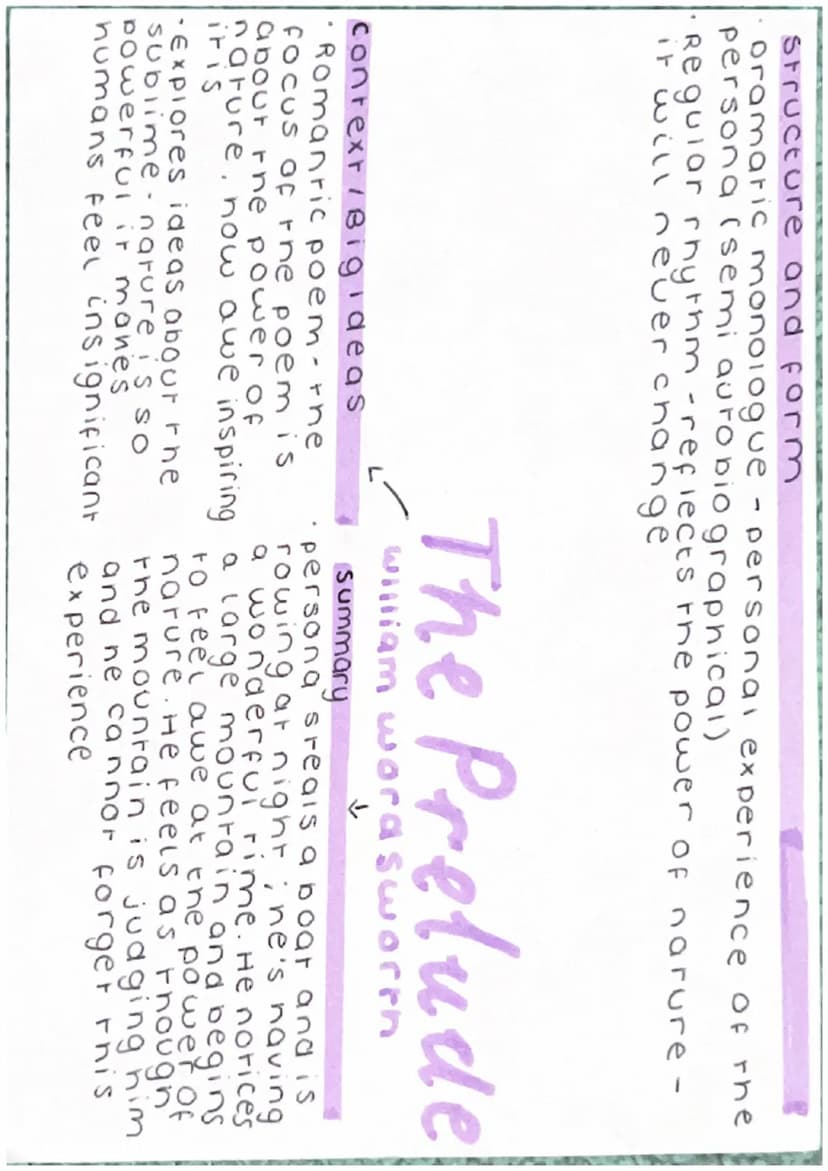 structure and form
· Dramatic monologue - personal experience of the
persona (semi autobiographical)
· Regular rhythm - reflects the power of nature -
it will never change
The Prelude
william wordsworth
context / Big ideas
· Romantic poem - the
focus of the poem is
about the power of
nature. how awe inspiring
it is
· explores ideas about the
sublime - nature is so
powerful it makes
humans feel insignificant
summary
· persona steals a boat and is
rowing at night ; he's having
a wonderful time. He notices
a large mountain and begins
to feel awe at the power of
nature. He feels as though
the mountain is judging him
and he cannot forget this
experience